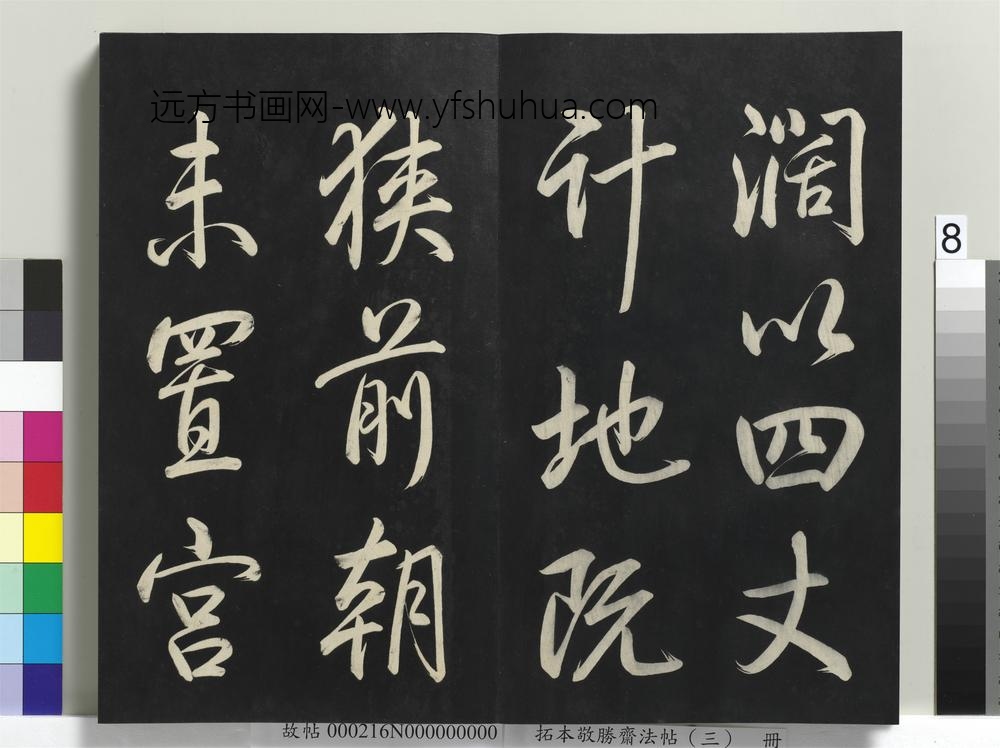 远方书画网-www.yfshuhua.com
阔以四丈
计地阮
狭前朝
未置宫
8
故帖 000216N000000000 拓本敬勝齋法帖（三） 冊